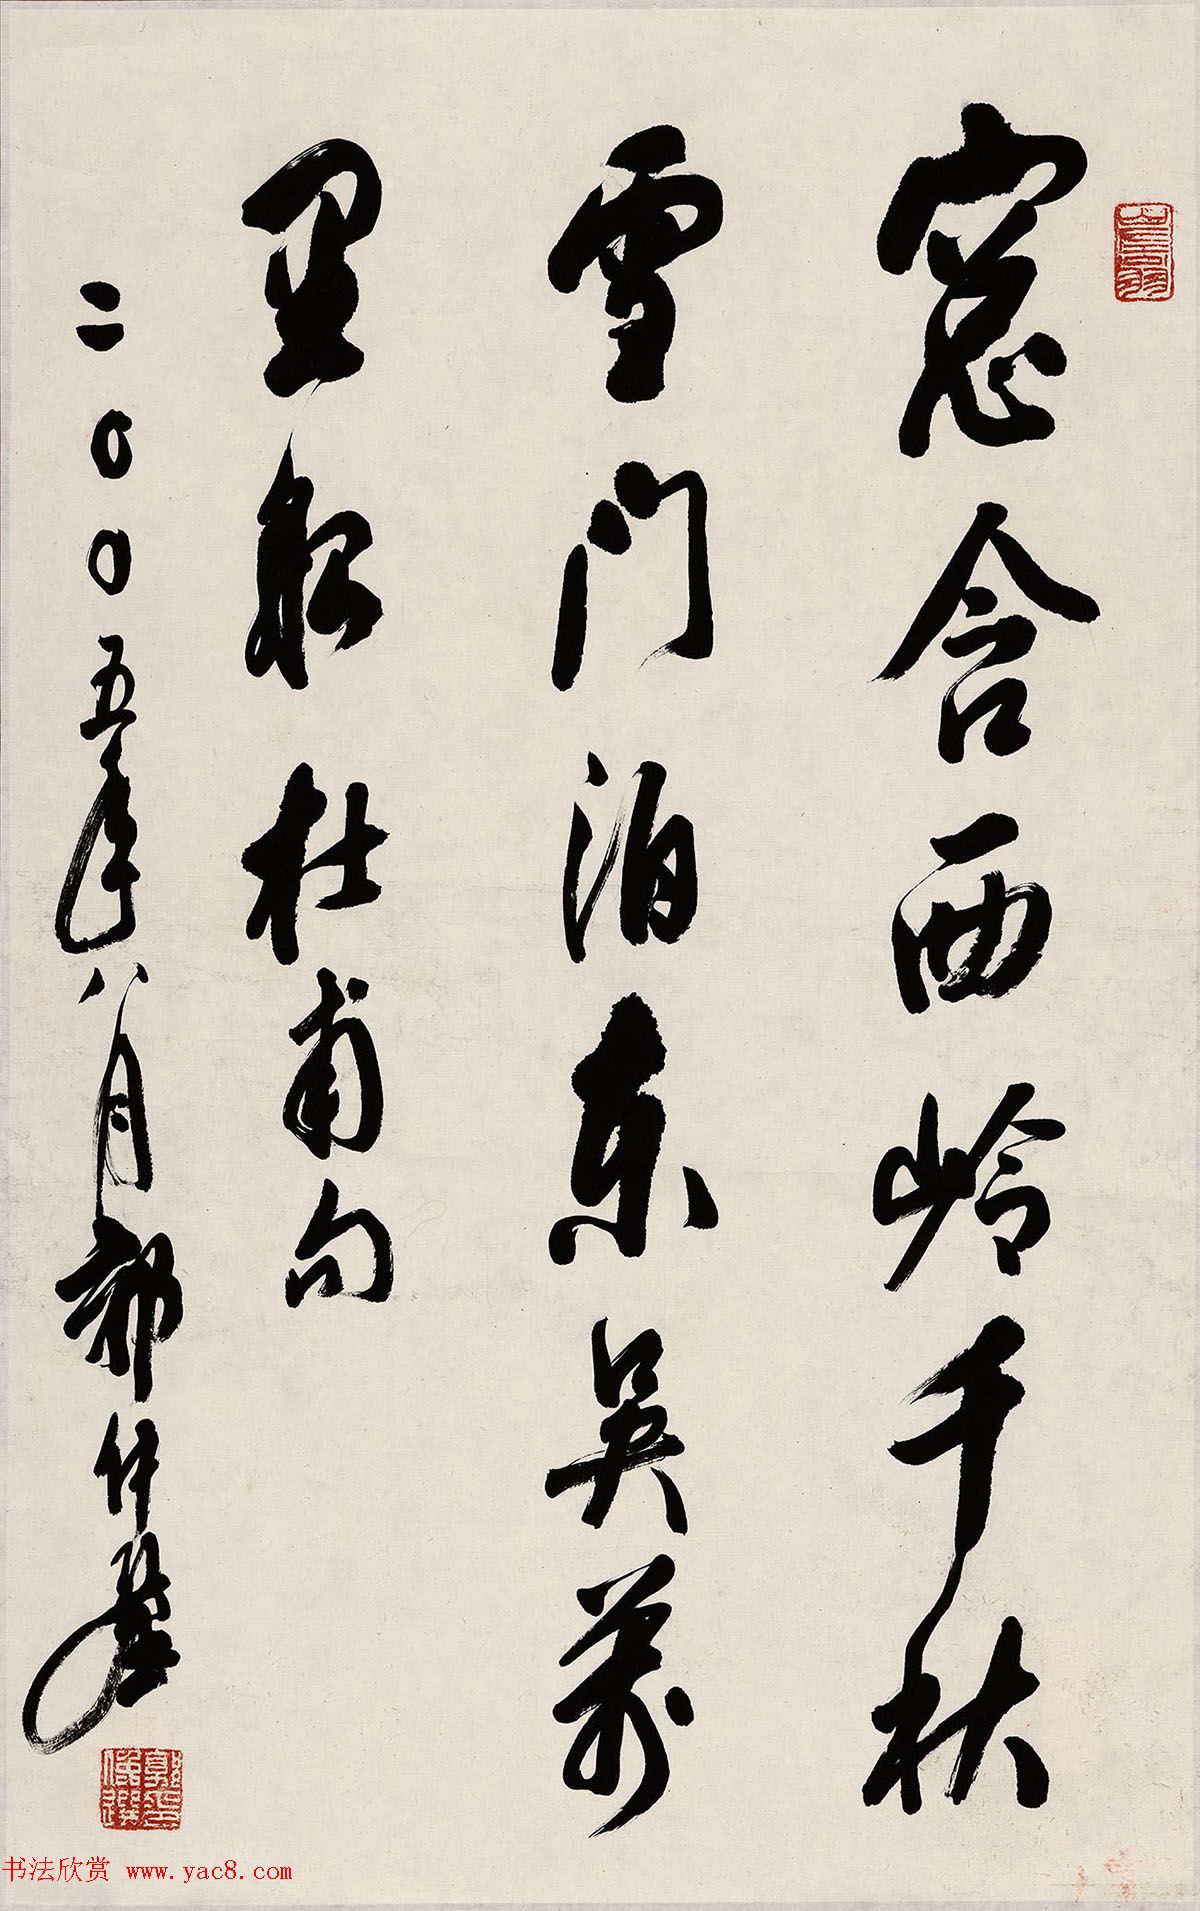 窓含西岭千秋
雪门泊东吴万
里船杜甫句
二〇〇五年八月郭仲选
郭仲选印
书法欣赏 www.yac8.com